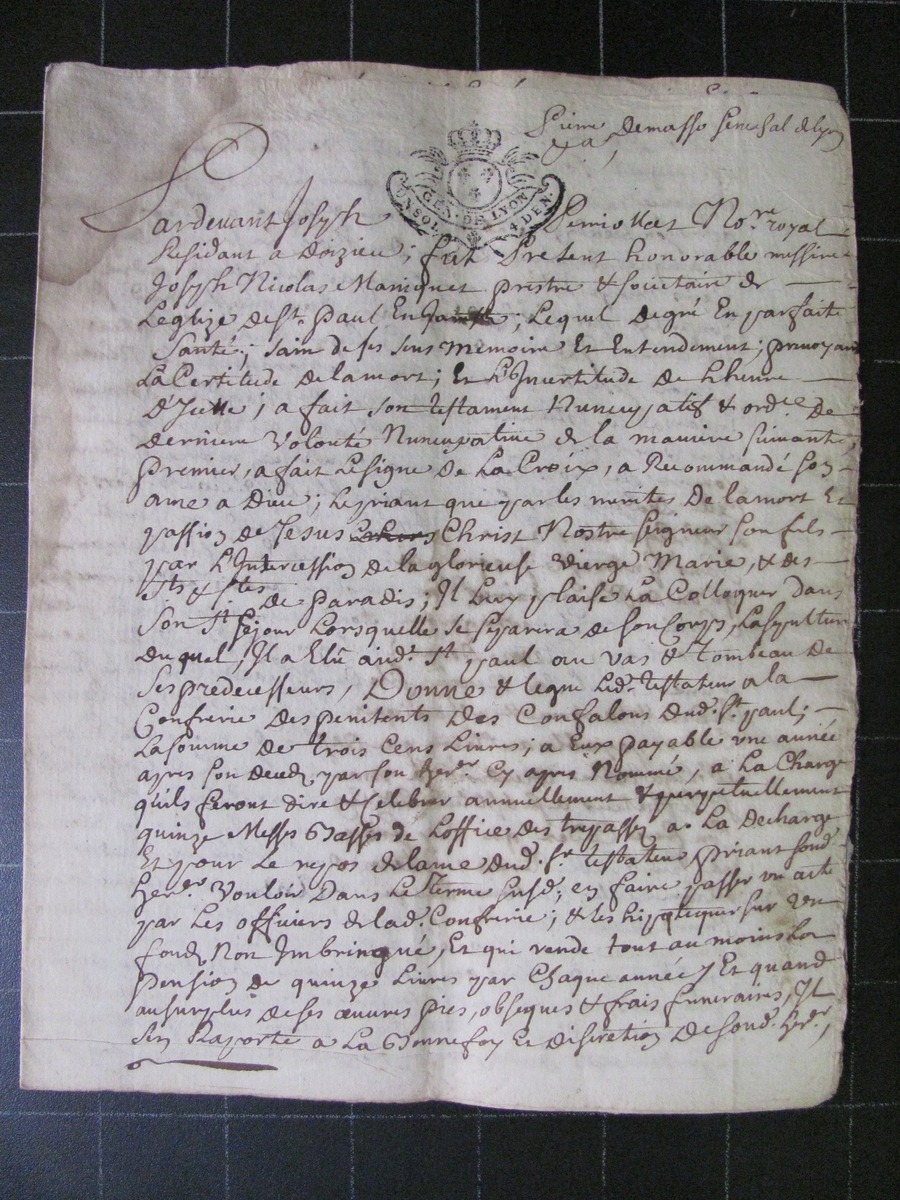 Pierre Demasso Seneschal de Lyon
GEN. DE LYON
UN SOL. DEN.
Pardevant Joseph No.re royal
Residant a Doizieu ; fut Present honorable messire
Joseph Nicolas Mariquet prestre & societaire de
Leglize de St. paul En Jarest ; Lequel de gré En parfaite
Santé ; sain de ses sens memoire Et Entendement ; prevoyant
La Certitude de lamort ; Et L'Incertitude de Lheure
D'Icelle ; a fait son testament Nuncupatif & ord.ce de
derniere Volonté Nuncupative de la maniere suivante ;
Premier, a fait Lesigne de La Croix, a Recommandé son
ame a Dieu ; Lepriant que par les merites De lamort Et
passion de Jesus Christ Nostre Seigneur son fils
par L'Intercession de la glorieuse Vierge Marie, & des
Sts & stes De paradis ; Il Luy plaise La Colloquer dans
Son St. sejour Lorsquelle se separera de son Corps, La sepulture
duquel, Il a Elû aud. St. paul au vas & tombeau De
Ses predecesseurs, Donne & legue Led. testateur a la
Confrerie des penitents des Confalons dud. St. paul ;
La somme de trois Cens Livres ; a Eux payable une année
apres son deced, par son her.er Cy apres Nommé, a La Charge
qu'ils feront dire & Celebrer annuellement & perpetuellement
quinze Messes Basses de Loffice des trepassez a La Decharge
Et pour Le repos de lame dud. sr. testateur, priant sond.
her.er Vouloir Dans Le terme susd., en faire passer un acte
par Les officiers de lad. Confrerie ; & les hipotequer sur un
fond Non Imbringué, Et qui rende tout au moins La
Pension de quinze Livres par Chaque année ; Et quand
au surplus de ses œuvres pies, obseques & frais funeraires, Il
Sen Raporte a La Bonne foy Et discretion de sond. her.er,